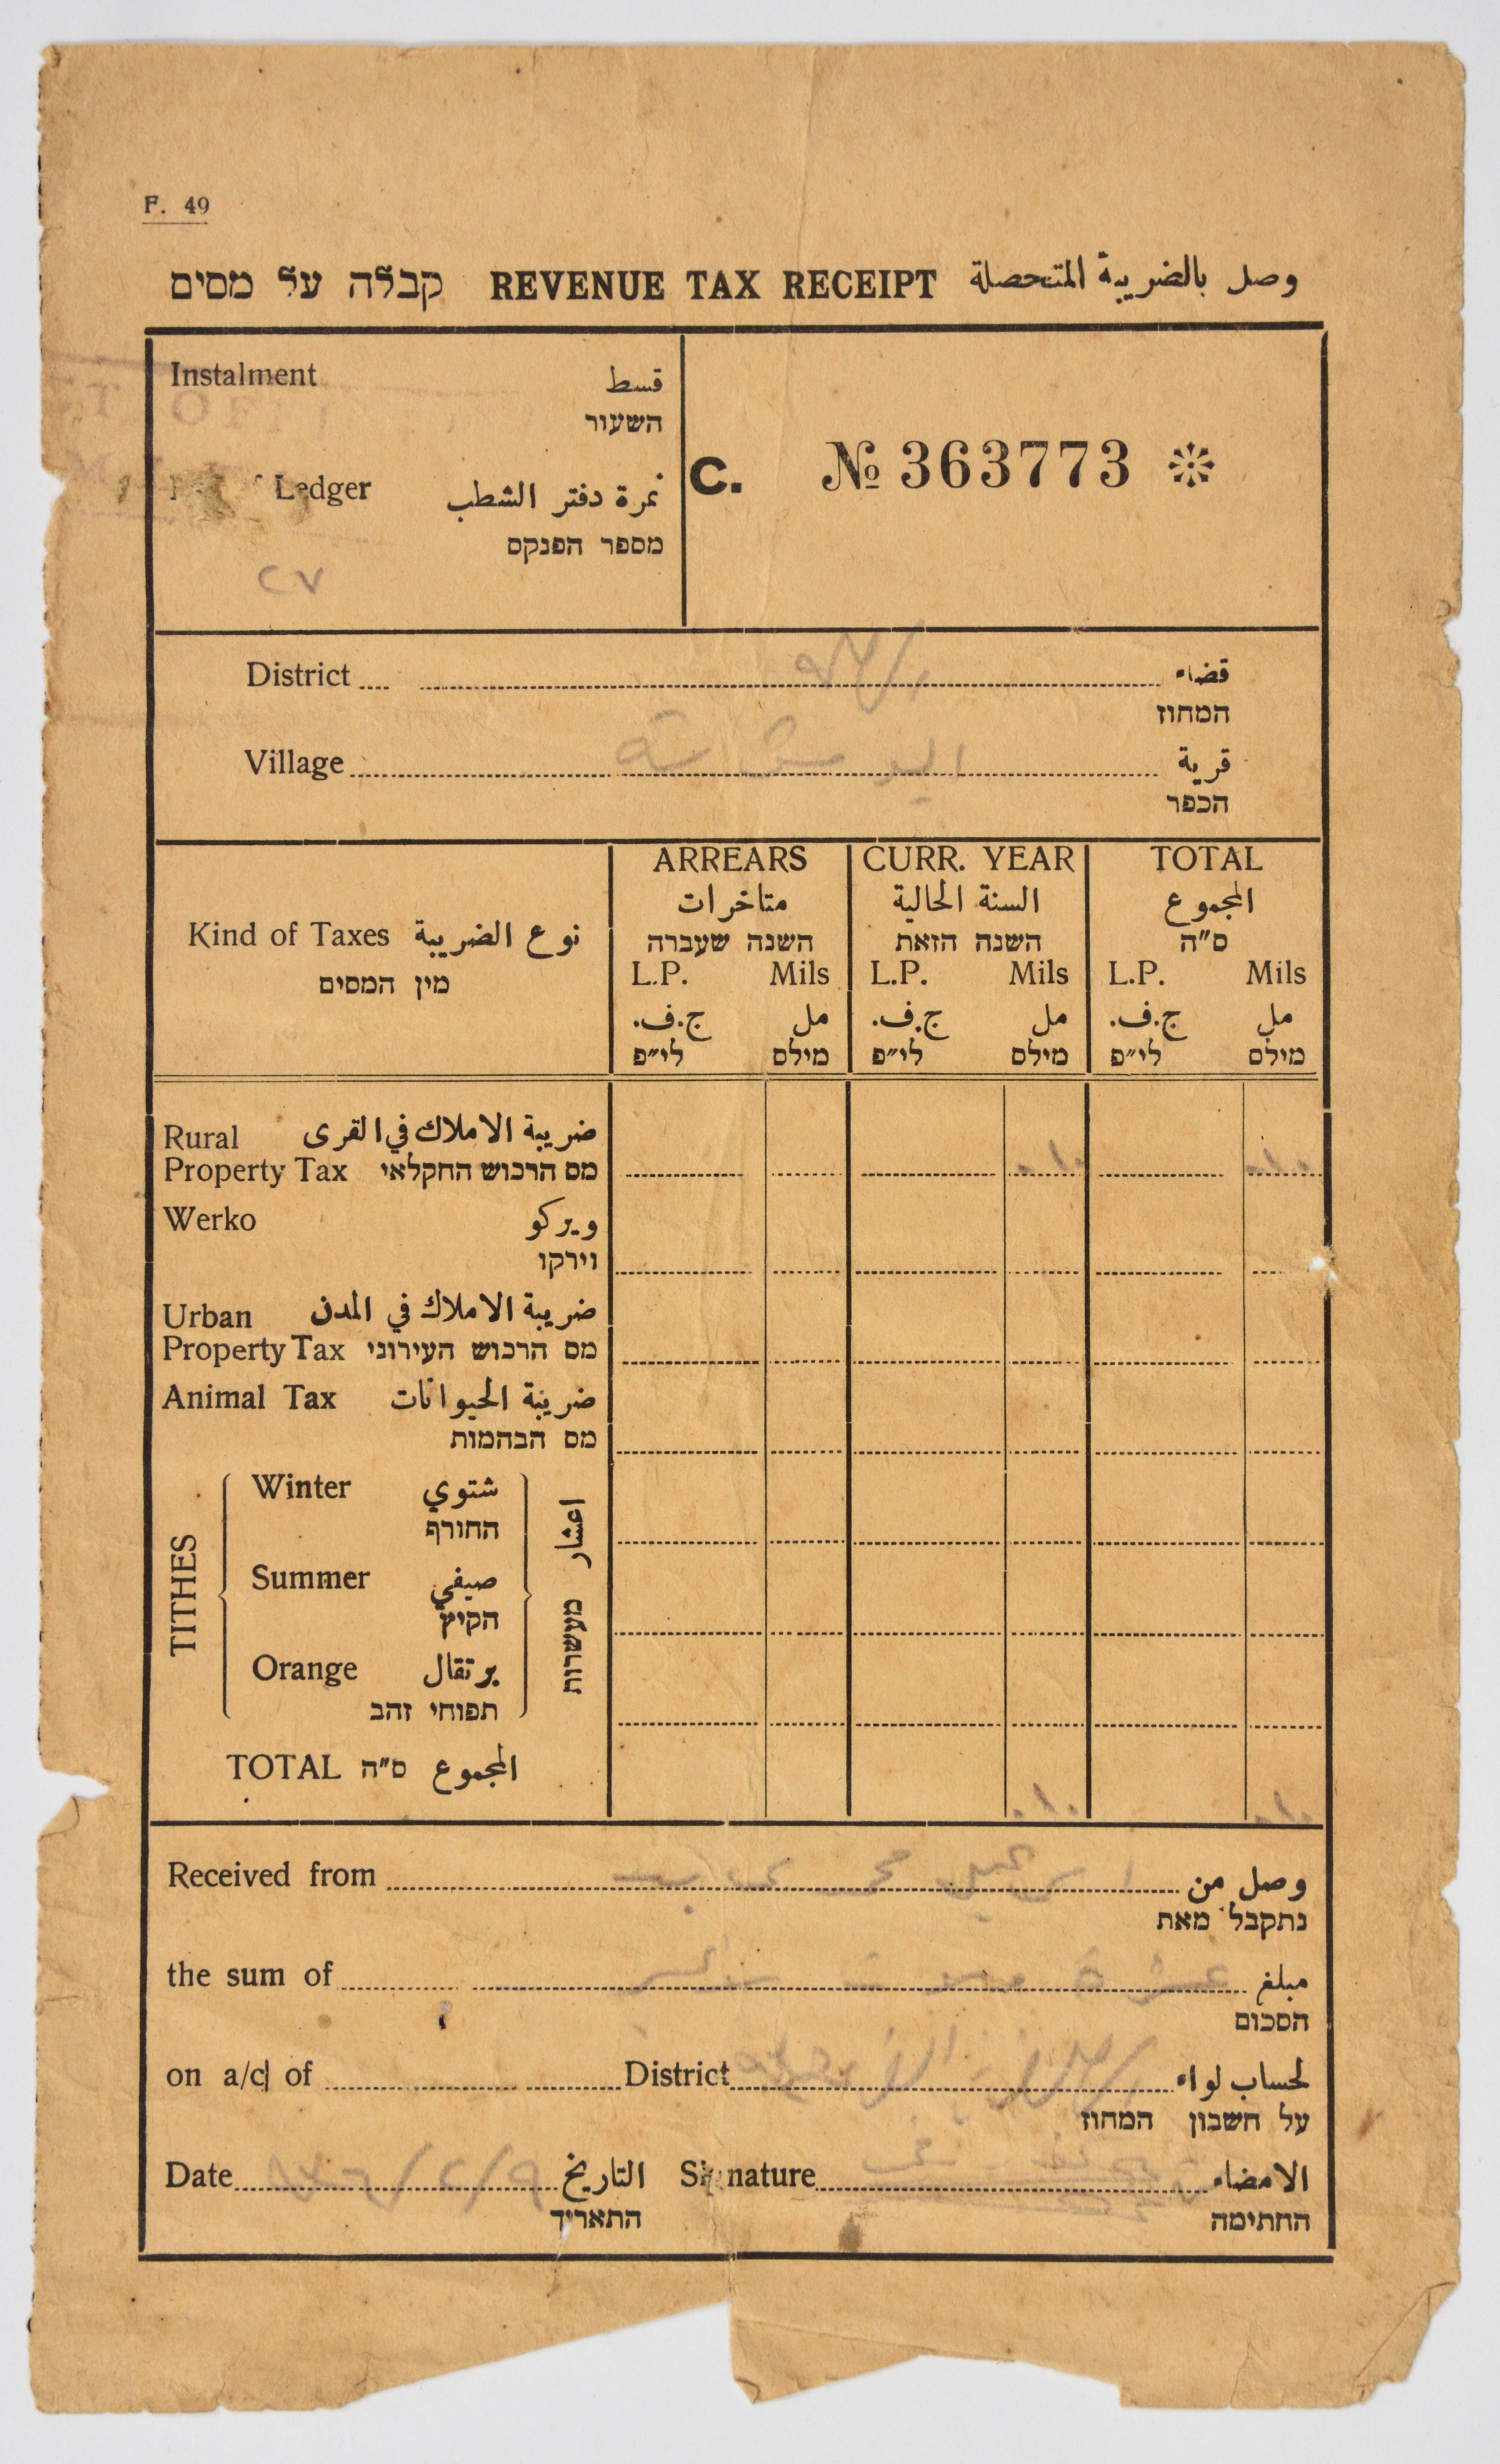 F. 49
קבלה על מסים REVENUE TAX RECEIPT وصل بالضريبة المتحصلة
Instalment قسط
השעור
Ledger نمرة دفتر الشطب
מספר הפנקס
C. № 363773
District قضاء
המחוז
Village قرية
הכפר
Kind of Taxes نوع الضريبة
מין המסים
ARREARS
متاخرات
השנה שעברה
L.P. Mils
ج.ف. مل
לי״פ מילס
CURR. YEAR
السنة الحالية
השנה הזאת
L.P. Mils
ج.ف. مل
לי״פ מילס
TOTAL
المجموع
ס״ה
L.P. Mils
ج.ف. مل
לי״פ מילס
Rural ضريبة الاملاك في القرى
Property Tax מס הרכוש החקלאי
٠١٠ ٠١٠
Werko ويركو
ווירקו
Urban ضريبة الاملاك في المدن
Property Tax מס הרכוש העירוני
Animal Tax ضريبة الحيوانات
מס הבהמות
TITHES اعشار מעשרות
Winter شتوي
החורף
Summer صيفي
הקיץ
Orange برتقال
תפוחי זהב
TOTAL ס״ה المجموع
٠١٠ ٠١٠
Received from وصل من
נתקבל מאת
the sum of مبلغ
הסכום
on a/c of District لحساب لواء
על חשבון המחוז
Date التاريخ Signature الامضاء
התאריך החתימה